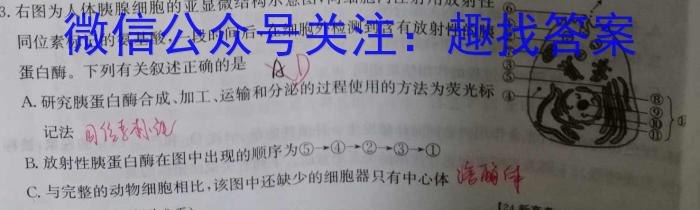 3. 右图为人体胰腺细胞的亚显微结构示意图,向细胞内注射用放射性
同位素 一段时间后,在细胞外检测到含有放射性的
微信公众号关注：趣找答案
蛋白酶。下列有关叙述正确的是
A. 研究胰蛋白酶合成、加工、运输和分泌的过程使用的方法为荧光标
记法 同位素标记
B. 放射性胰蛋白酶在图中出现的顺序为⑤→④→②→③→①
C. 与完整的动物细胞相比,该图中还缺少的细胞器只有中心体 溶酶体
④
⑤
⑧
⑨
⑩